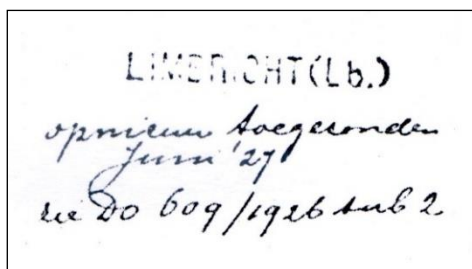 LIMBRICHT (Lb.)
opnieuw toegezonden
Juni '27
zie DO 609/1926 sub 2